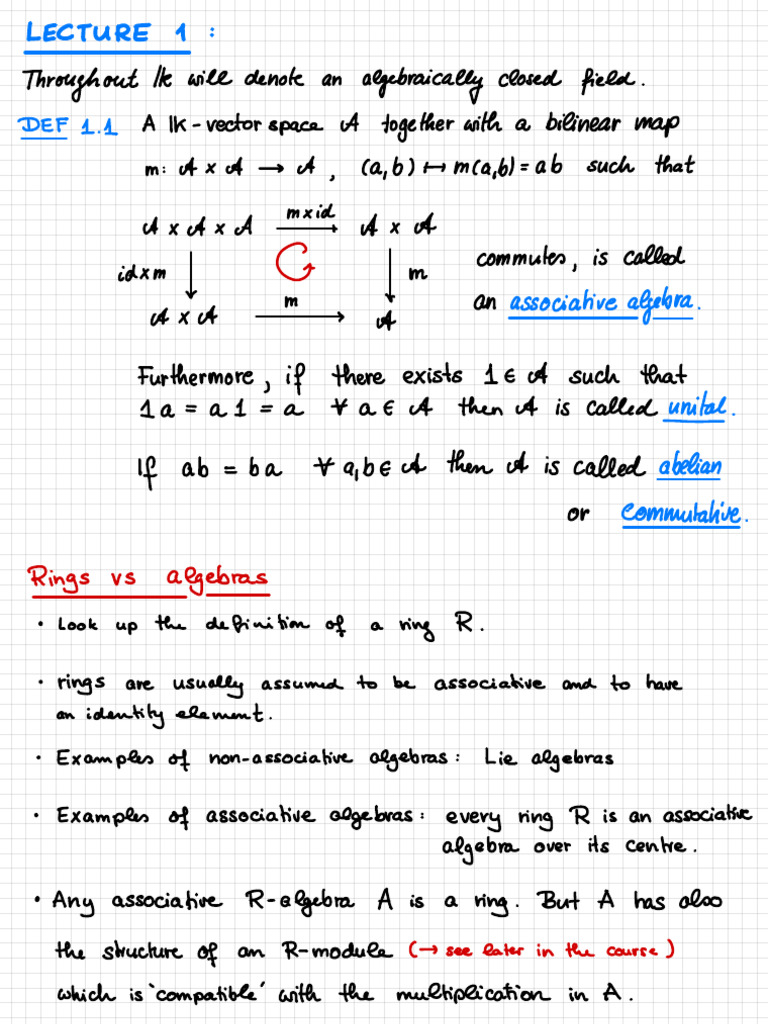 LECTURE 1 :
Throughout 𝕜 will denote an algebraically closed field.
DEF 1.1 A 𝕜-vector space A together with a bilinear map
m: A × A → A, (a,b) ↦ m(a,b) = ab such that
A × A × A m×id → A × A
commutes, is called
id×m ↓ ↺ ↓ m
an associative algebra.
A × A m → A
Furthermore, if there exists 1 ∈ A such that
1a = a1 = a ∀ a ∈ A then A is called unital.
If ab = ba ∀ a,b ∈ A then A is called abelian
or commutative.
Rings vs algebras
• Look up the definition of a ring R.
• rings are usually assumed to be associative and to have
an identity element.
• Examples of non-associative algebras: Lie algebras
• Examples of associative algebras: every ring R is an associative
algebra over its centre.
• Any associative R-algebra A is a ring. But A has also
the structure of an R-module (→ see later in the course)
which is 'compatible' with the multiplication in A.